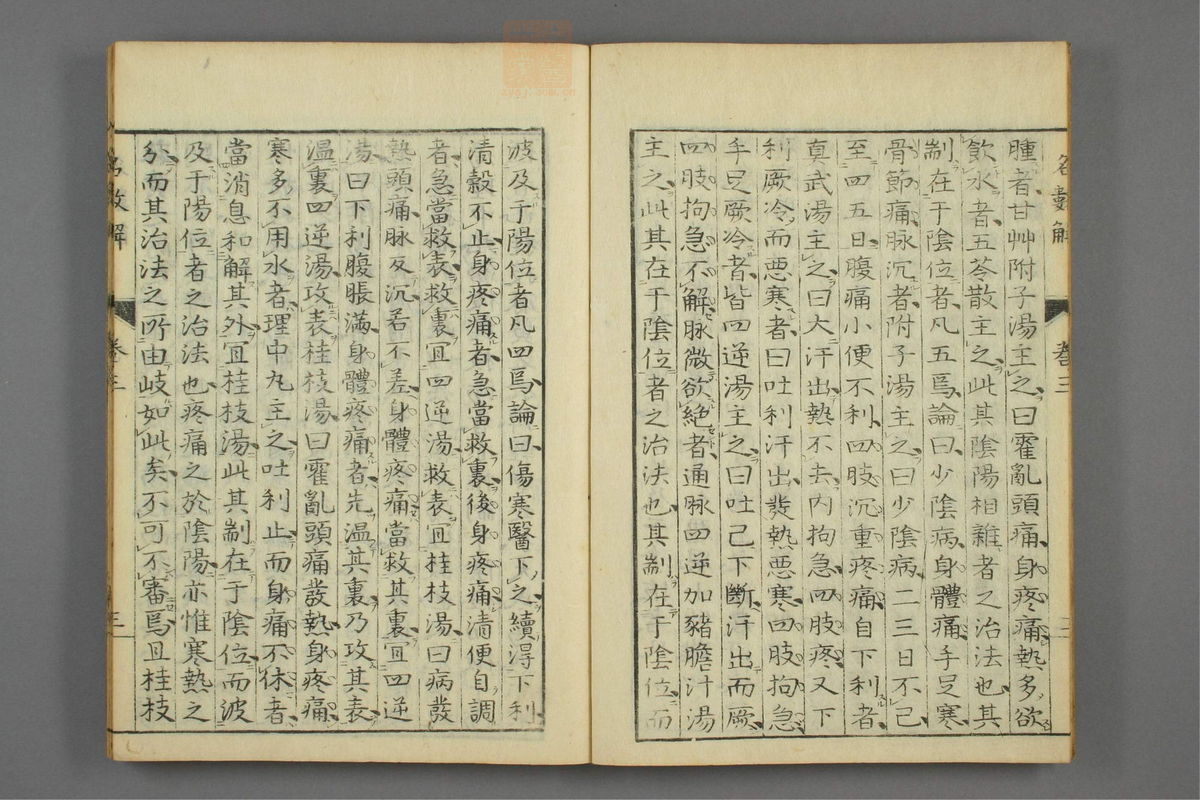 腫者甘艸附子湯主之曰霍亂頭痛身疼痛熱多欲
飲水者五苓散主之此其陰陽相雜者之治法也其
制在于陰位者凡五焉論曰少陰病身體痛手足寒
骨節痛脉沉者附子湯主之曰少陰病二三日不已
至四五日腹痛小便不利四肢沉重疼痛自下利者
真武湯主之曰大汗出熱不去内拘急四肢疼又下
利厥冷而悪寒者曰吐利汗出發熱悪寒四肢拘急
手足厥冷者皆四逆湯主之曰吐已下斷汗出而厥
四肢拘急不解脉微欲絶者通脉四逆加豬膽汁湯
主之此其在于陰位者之治法也其制在于陰位而
波及于陽位者凡四焉論曰傷寒醫下之續得下利
清穀不止身疼痛者急當救裏後身疼痛清便自調
者急當救表救裏冝四逆湯救表冝桂枝湯曰病發
熱頭痛脉反沉若不差身體疼痛當救其裏冝四逆
湯曰下利腹脹滿身體疼痛者先溫其裏乃攻其表
溫裏四逆湯攻表桂枝湯曰霍亂頭痛發熱身疼痛
寒多不用水者理中丸主之吐利止而身痛不休者
當消息和解其外冝桂枝湯此其制在于陰位而波
及于陽位者之治法也疼痛之於陰陽亦惟寒熱之
分而其治法之所由岐如此矣不可不審焉且桂枝
名數解
卷三
三